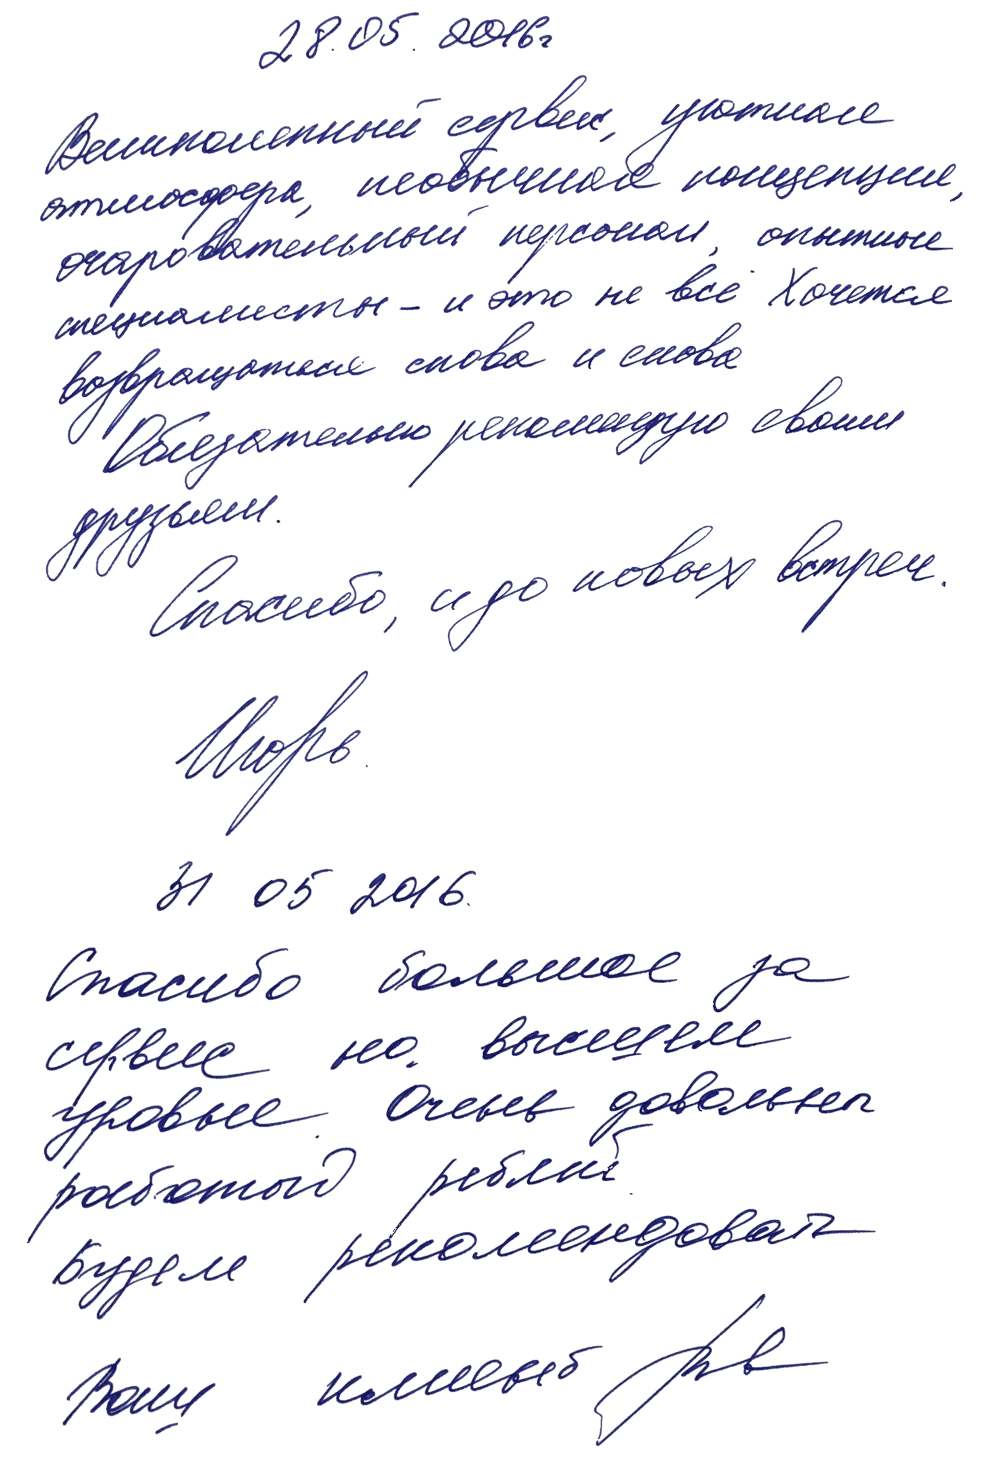 28.05.2016г
Великолепный сервис, уютная
атмосфера, необычная концепция,
очаровательный персонал, опытные
специалисты – и это не всё Хочется
возвращаться снова и снова
Обязательно рекомендую своим
друзьям.
Спасибо, и до новых встреч.
Игорь.
31 05 2016.
Спасибо большое за
сервис на высшем
уровне. Очень довольны
работой ребят.
Будем рекомендовать
Ваш